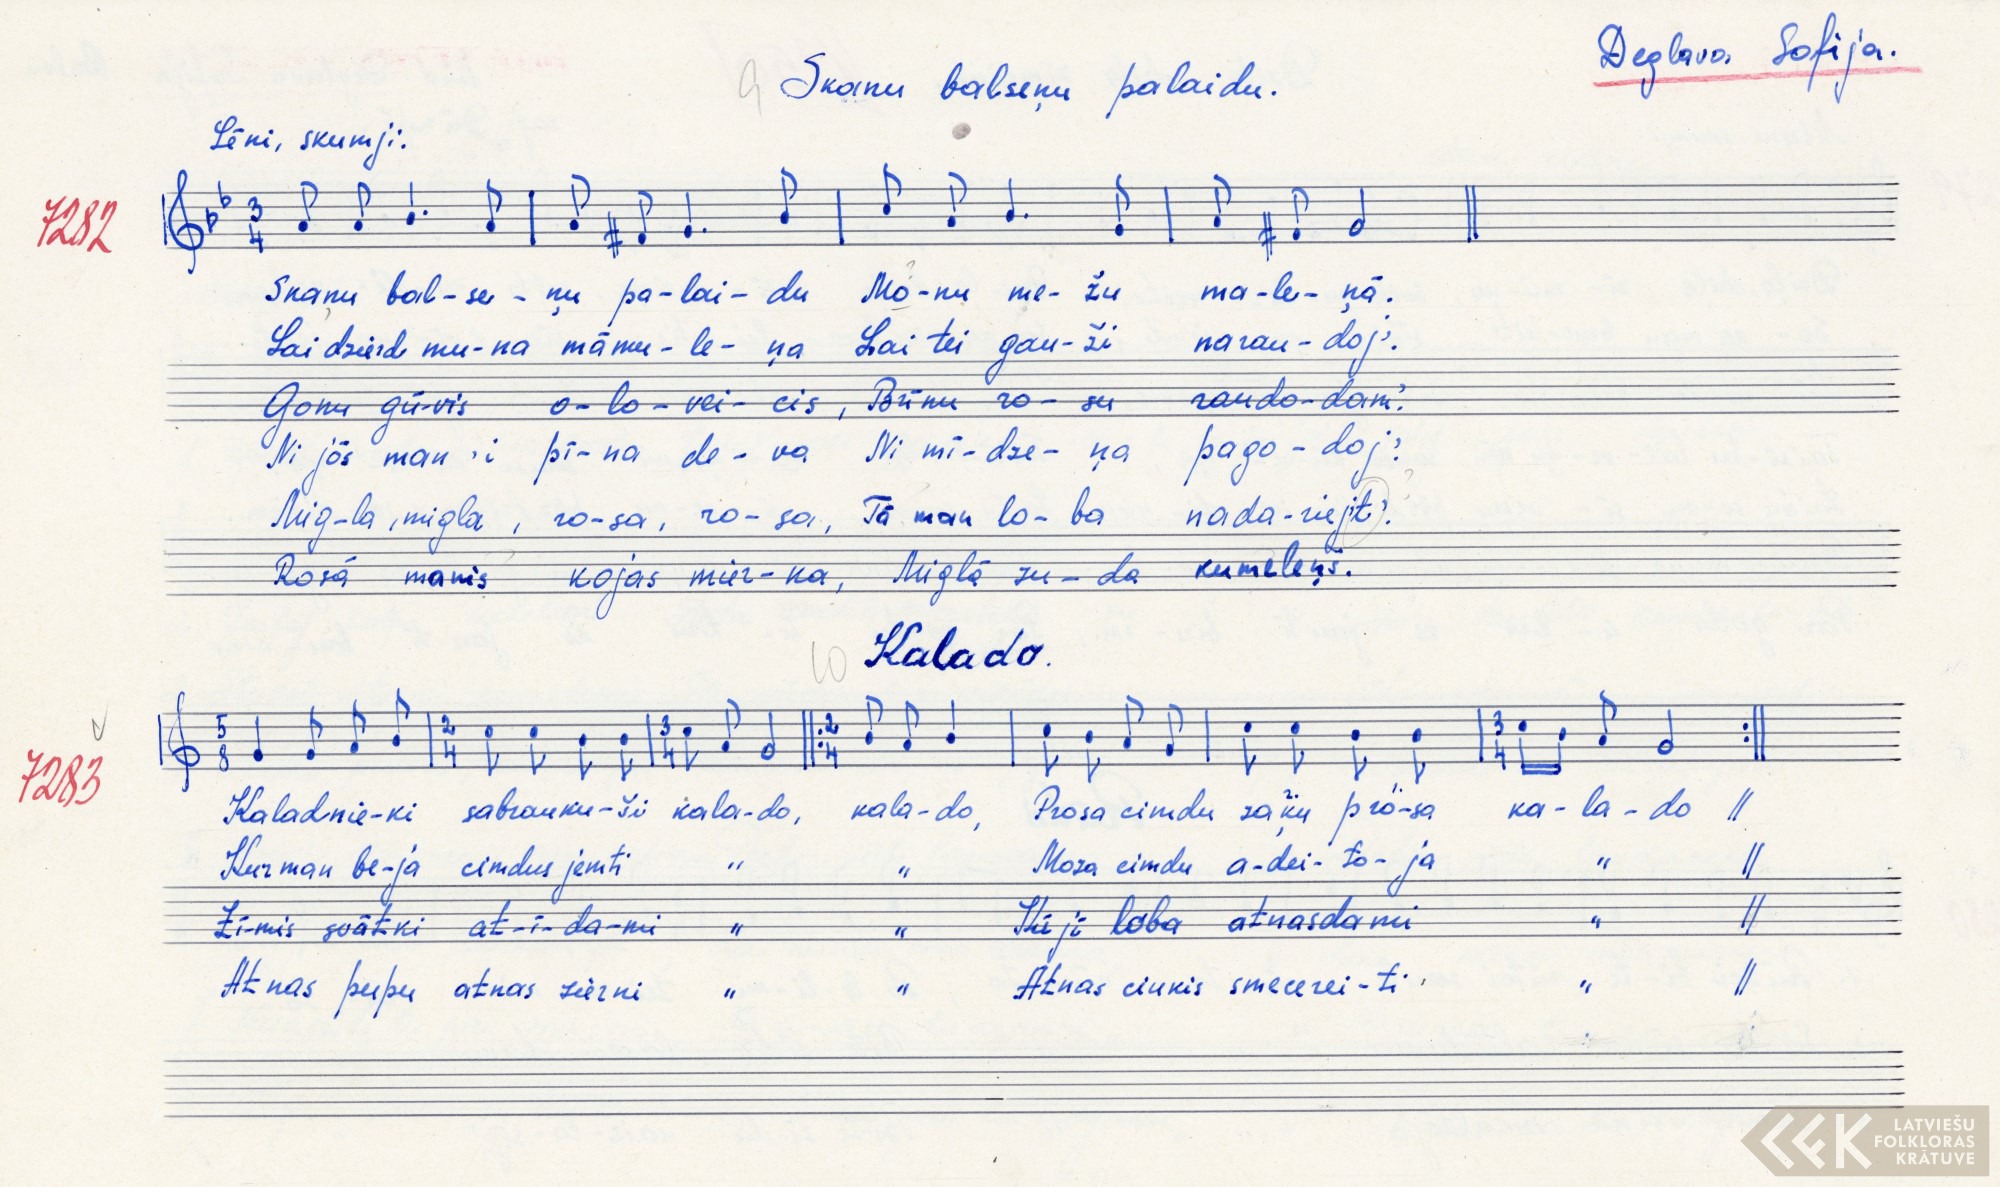 Deglava Sofija.
9 Skanu balseņu palaidu.
Lēni, skumji.
7282
3
4
Skanu bal-se-ņu pa-lai-du Mo-nu me-žu ma-le-ņā.
Lai dzierd mu-na māmu-le-ņa Lai tei gau-ži narau-doj'.
Gonu gū-vis o-lo-vei-cis, Brīnu ro-su raudo-dam'.
Ni jōs man 'i pī-na de-va Ni mī-dze-ņa pago-doj'.
Mig-la, migla, ro-sa, ro-sa, Tā man lo-ba nada-riejt'.
Rosā manis kojas mier-ka, Miglā zu-da kumeleņš.
10 Kalado.
7283
5 2 3 2 3
8 4 4 4 4
Kaladnie-ki sabrauku-ši kala-do, kala-do, Prosa cimdu zaķu prō-sa ka-la-do //
Kur man be-ja cimdus jemti " " Moza cimdu a-dei-to-ja " //
Zī-mis svātki at-ī-da-mi " " Kū jī loba atnasdami " //
Atnas pupu atnas zierni " " Atnas ciukis smecerei-ti " //
LATVIEŠU
FOLKLORAS
KRĀTUVE